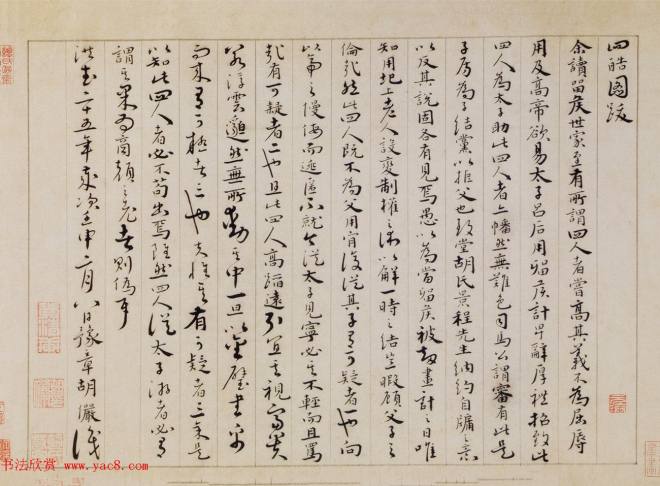 四皓圖跋
余讀留侯世家至有所謂四人者嘗高其義不為屈辱
用及高帝欲易太子呂后用留侯計卑辭厚禮招致此
四人為太子助此四人者亦幡然無難色司馬公謂審有此是
子房為子結黨以拒父也致堂胡氏景程先生納約自牖之意
以反其說固各有見焉愚以為當留侯被劫畫計之日唯
知用地上老人設變制權之術以解一時之結豈暇顧父子之
倫哉然此四人既不為父用肯復從其子有可疑者一也向
以帝之慢侮而逃匿不就今從太子見寧必其不輕而且罵
哉有可疑者二也且此四人高蹈遠引宜其視富貴
若浮雲邈然無所動其中一旦以金璧書帛
而來有可疑者三也夫惟其有可疑者三來是
以知此四人者必不苟出焉雖然四人從太子游者必有
謂其果為商顏之老者則偽耳
洪武二十五年歲次壬申二月八日豫章胡儼識
书法欣赏 www.yac8.com